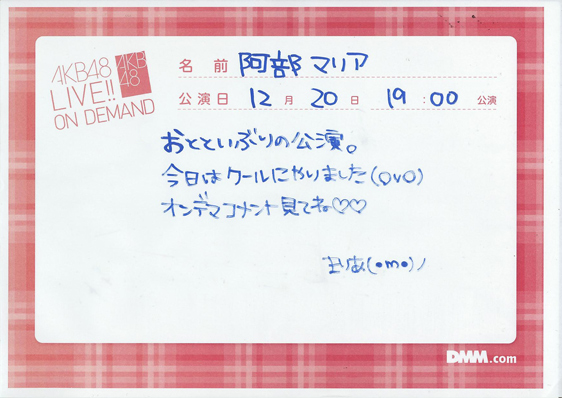 AKB48
LIVE!!
ON DEMAND
AKB
48
名 前 阿部 マリア
公演日 12 月 20 日 19:00 公演
おとといぶりの公演。
今日はクールにやりました(OvO)
オンデマコメント見てね♡♡
まりあ(・m・)ノ
DMM.com